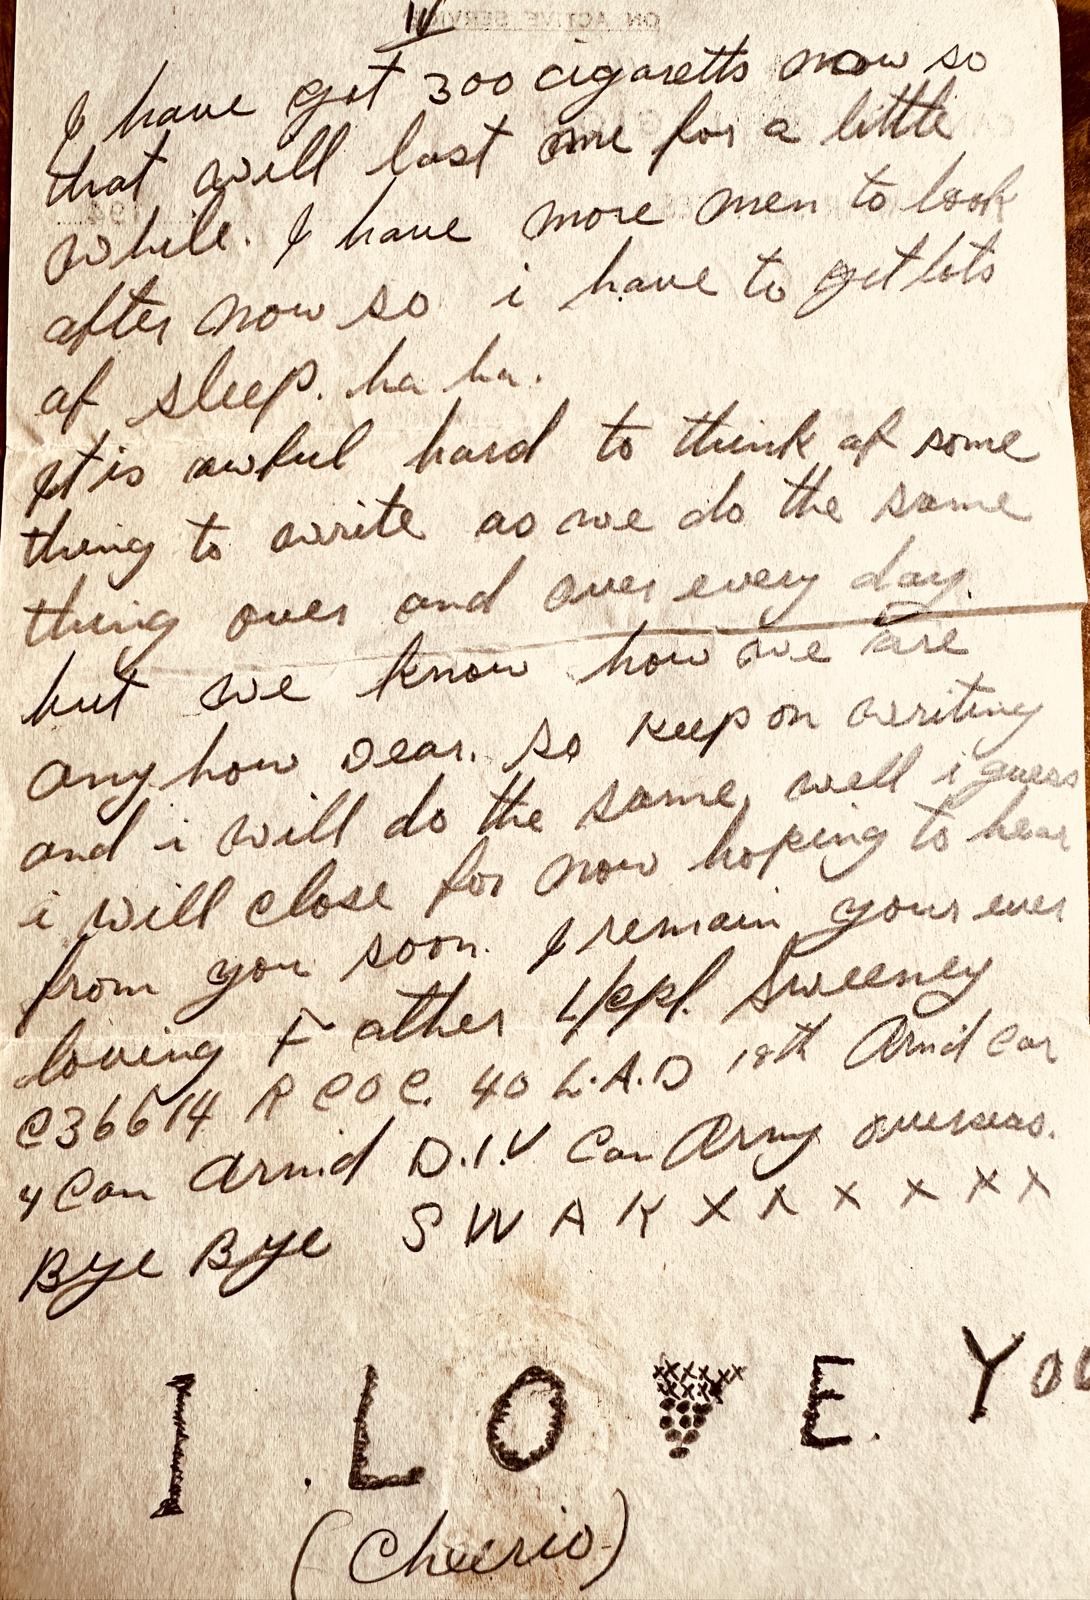 ON ACTIVE SERVICE
IV
I have got 300 cigaretts now so
that will last me for a little
while. I have more men to look
after now so i have to get lots
of sleep. ha ha.
It is awful hard to think of some
thing to write as we do the same
thing over and over every day.
but we know how we are
any how Dear. so keep on writing
and i will do the same, well i guess
i will close for now hoping to hear
from you soon. I remain your ever
loving Father L/Cpl. Sweeney
C36614 R C O C. 40 L.A.D 18th Armd Car
4 Can Armd D.I.V Can Army overseas.
Bye Bye S W A K X X X X X X
I . L O V E. YOU
(Cheerio)